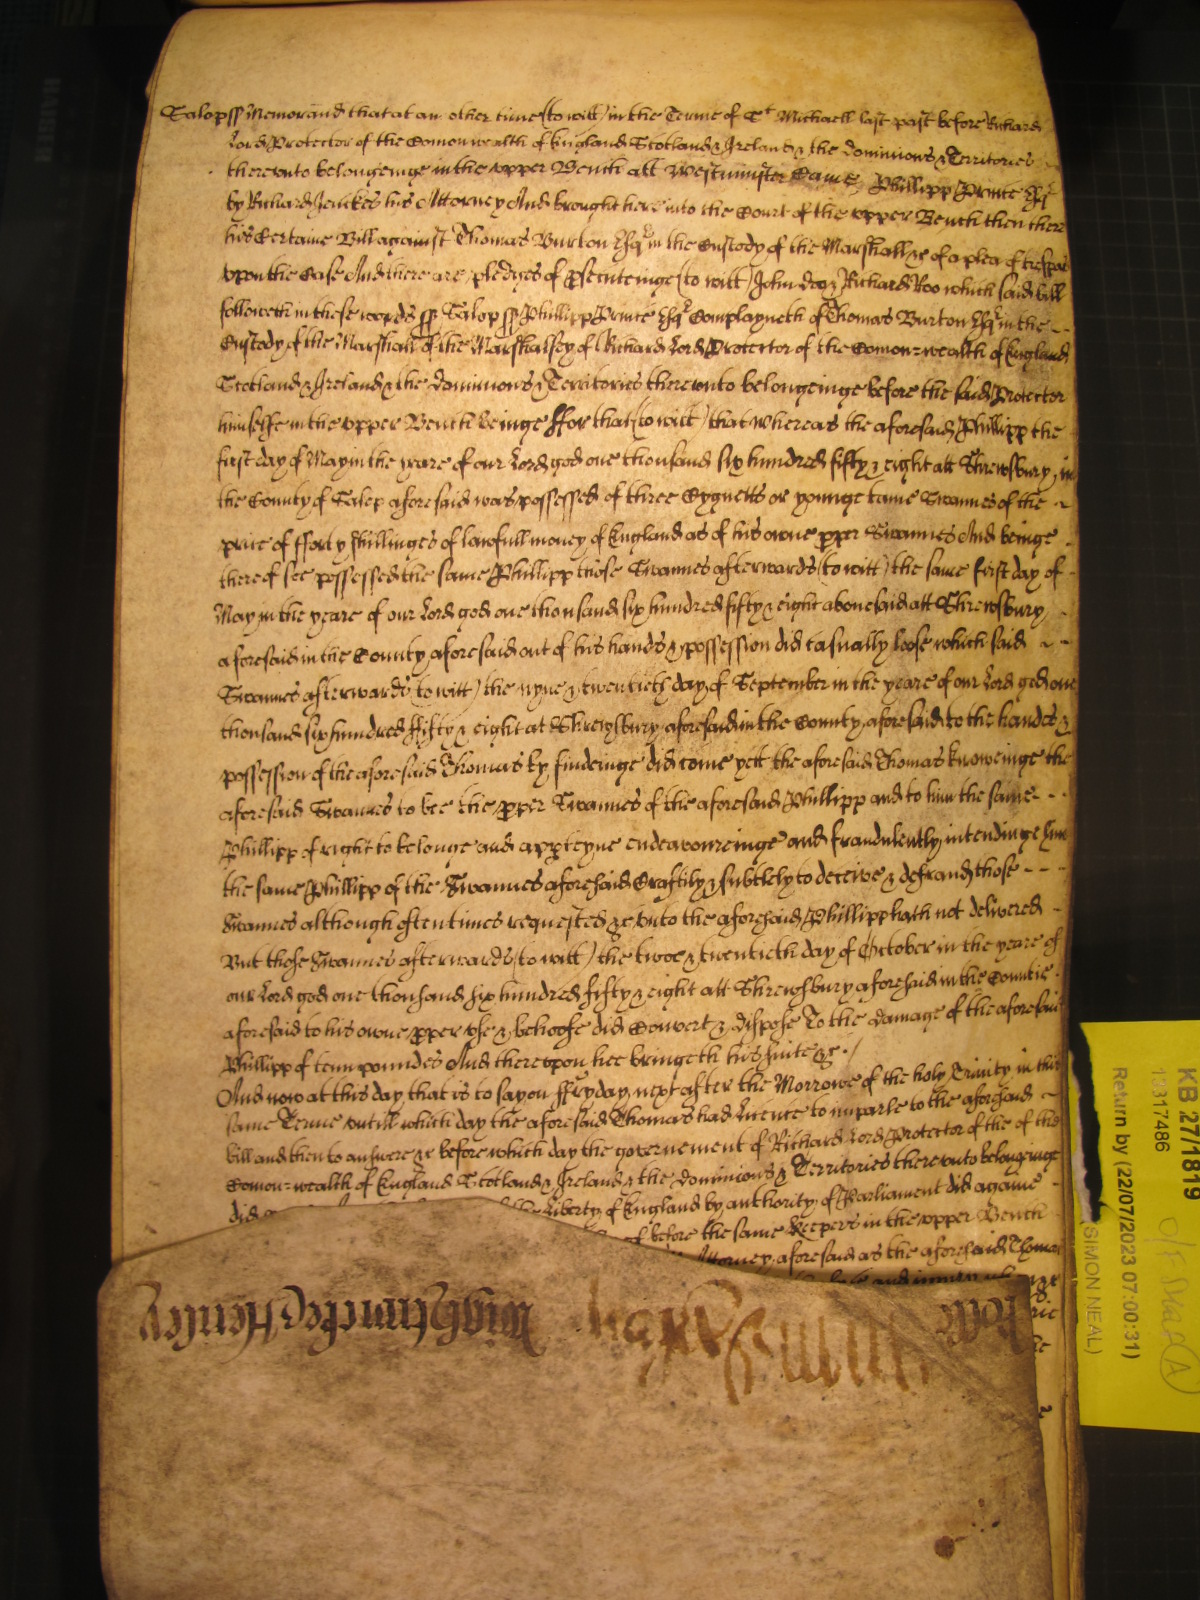 Salop ss Memorand that at an other time (to witt) in the Terme of St Michaell last past before Richard
Lord Protector of the Comonwealth of England Scotland & Ireland & the dominions & Territories
thereunto belongeinge in the upper Bench att Westminster Came Phillipp Prince Esqr
by Richard Jenckes his Attorney And brought here into the Court of the upper Bench then there
his Certaine Bill against Thomas Burton Esqr in the Custody of the Marshall &c of a plea of trespas
upon the Case And there are pledges of psecuteinge (to witt) John Doo & Richard Roo which said bill
followeth in these words ss Salop ss Phillipp Prince Esqr Complayneth of Thomas Burton Esqr in the
Custody of the Marshall of the Marshallsey of Richard Lord Protector of the Comon=wealth of England
Scotland & Ireland & the dominions & Territories thereunto belongeinge before the said Protector
himselfe in the upper Bench beinge ffor that (to witt) that whereas the aforesaid Phillipp the
first day of May in the yeare of our Lord god one thousand six hundred fifty & eight att Shrewsbury in
the County of Salop aforesaid was possessed of three Cygnetts or younge tame Swannes of the
price of fforty shillinges of lawfull money of England as of his owne pper Swannes And beinge
thereof soe possessed the same Phillipp those Swannes afterwards (to witt) the same first day of
May in the yeare of our Lord god one thousand six hundred fifty & eight abovesaid att Shrewsbury
aforesaid in the County aforesaid out of his hands & possession did casually loose which said
Swannes afterwards (to witt) the nyne & twentieth day of September in the yeare of our Lord god one
thousand six hundred ffifty & eight at Shrewsbury aforesaid in the County aforesaid to the handes &
possession of the aforesaid Thomas by findeinge did come yett the aforesaid Thomas knoweinge the
aforesaid Swannes to bee the pper Swannes of the aforesaid Phillipp and to him the same
Phillipp of right to belonge and apperteyne endeavoureinge and fraudulently intendinge him
the same Phillipp of the Swannes aforesaid Craftily & subtlely to deceive & defraud those
Swannes although oftentimes requested &c unto the aforesaid Phillipp hath not delivered
But those Swannes afterwards (to witt) the twoe & twentieth day of October in the yeare of
our Lord god one thousand six hundred fifty & eight att Shrewsbury aforesaid in the Countie
aforesaid to his owne pper use & behoofe did Convert & dispose To the damage of the aforesaid
Phillipp of tenn poundes And thereupon hee bringeth his suite &c
And now at this day that is to say on ffryday next after the Morrowe of the holy Trinity in this
same Terme untill which day the aforesaid Thomas had licence to imparle to the aforesaid
bill and then to answere &c before which day the governement of Richard Lord Protector of the of the
Comon=wealth of England Scotland & Ireland & the dominions & Territories thereunto belonginge
did the Liberty of England by authority of Parliament did againe
of before the same Keepers in the upper Bench
Attorney aforesaid as the aforesaid Thomas
and
Wightwicke & Henley
KB 27/1819
1317486
Return by (22/07/2023 07:00:31)
(SIMON NEAL)
A